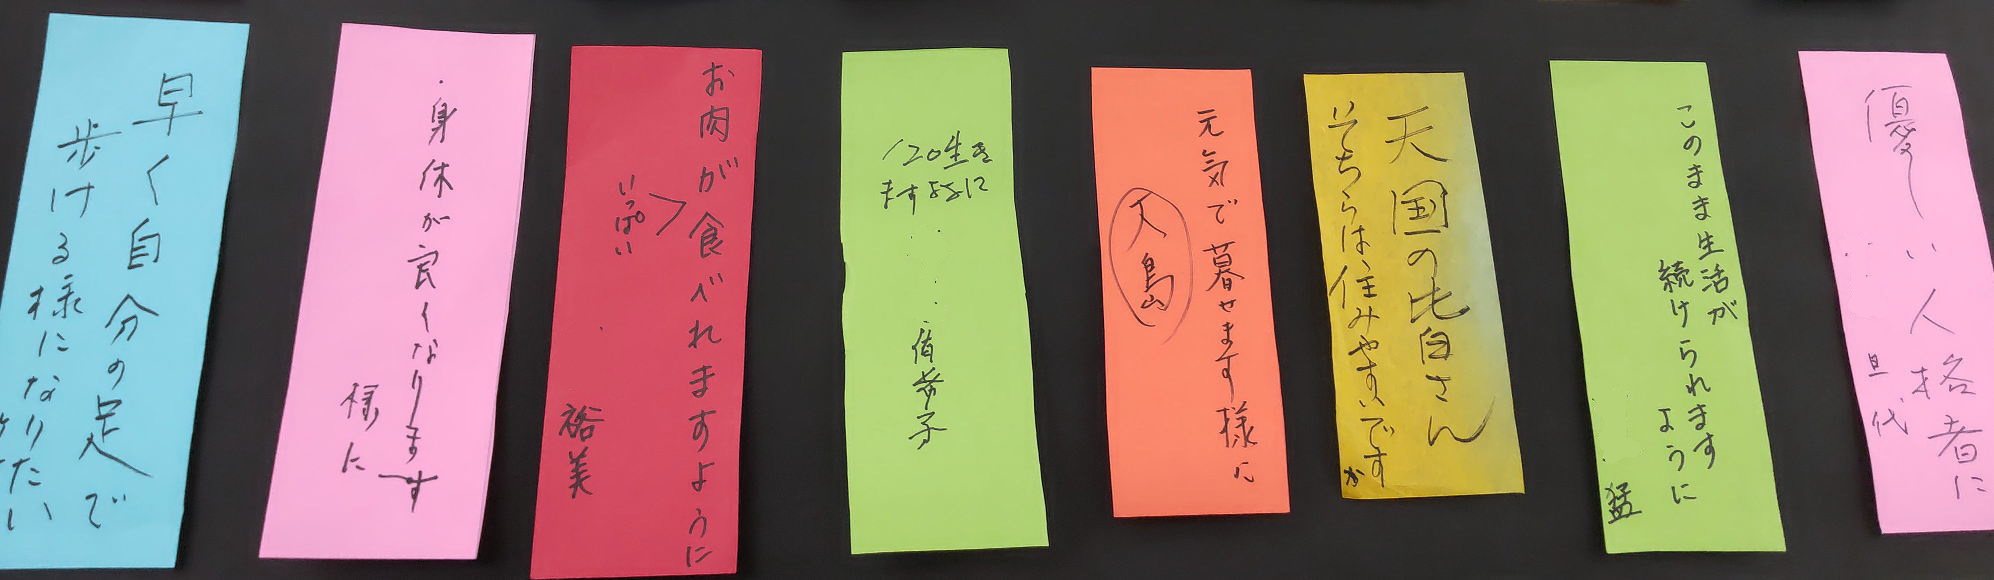 早く自分の足で
歩ける様になりたい
身体が良くなります
様に
お肉が食べれますように
いっぱい
裕美
120生き
ますように
元気で暮せます様に
大島
天国の皆さん
そちらは住みやすいですか
このまま生活が
続けられます
ように
猛
優しい人格者に